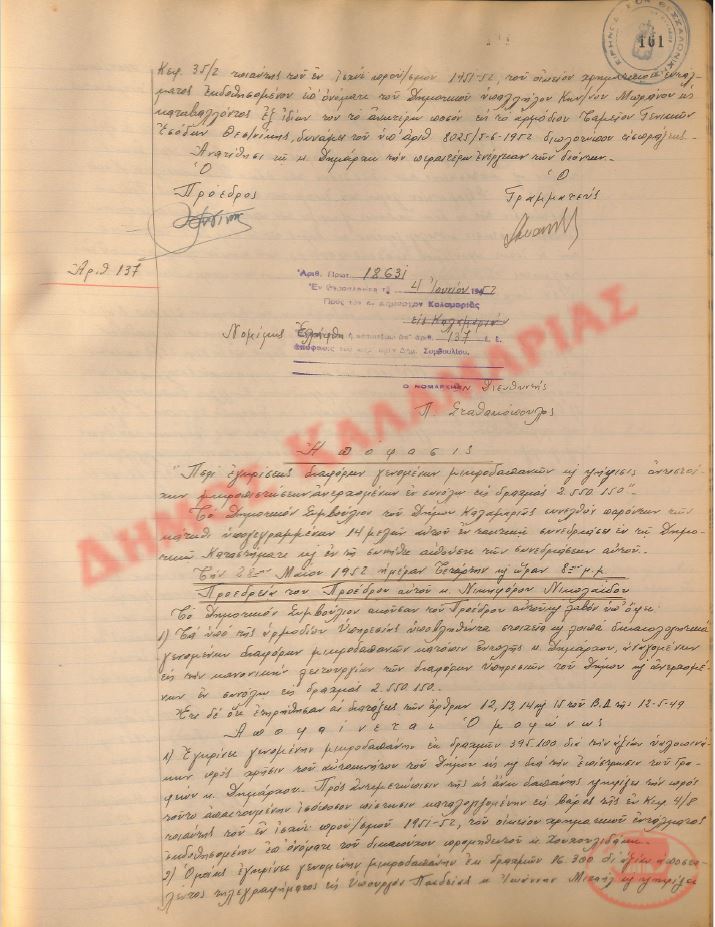 161
Κεφ. 35/2 τοιαύτης τοῦ ἐν ἰσχύϊ προϋ/σμοῦ 1951-52, τοῦ οἰκείου χρηματικοῦ ἐντάλ-
ματος ἐκδοθησομένου ἐπ' ὀνόματι τοῦ Δημοτικοῦ ὑπαλλήλου
καταβαλλόντος ἐξ ἰδίων του τὸ ἀνωτέρω ποσὸν εἰς τὸ ἁρμόδιον Ταμεῖον Γενικῶν
Ἐσόδων Θεσ/νίκης, δυνάμει τοῦ ὑπ' ἀριθ 8025/5-6-1952 διπλοτύπου εἰσπράξεως.-
Ἀνατίθησι τῷ κ. Δημάρχῳ τὴν περαιτέρω ἐνέργειαν τῶν δεόντων.-
Ὁ Ὁ
Πρόεδρος Γραμματεὺς
Ἀριθ 137
Ἀριθ. Πρωτ. 18631
Ἐν Θεσσαλονίκῃ τῇ 4 Ἰουνίου 1952
Πρὸς τὸν κ. Δήμαρχον Καλαμαριᾶς
εἰς Καλαμαριάν
Νομίμως Ἐλήφθη ὑπ' ἀριθ. 137 ἐ. ἔ.
ἀπόφασις τοῦ Δημ. Συμβουλίου.
Ὁ ΝΟΜΑΡΧΗΣ Διευθυντὴς
Π. Σταθακόπουλος
ΔΗΜΟΣ ΚΑΛΑΜΑΡΙΑΣ
Ἀπόφασις
"Περὶ ἐγκρίσεως διαφόρων γενομένων μικροδαπανῶν καὶ ψήφισις ἀντιστοί-
χων μικροπιστώσεων ἀνερχομένων ἐν συνόλῳ εἰς δραχμὰς 2.550.150".-
Τὸ Δημοτικὸν Συμβούλιον τοῦ Δήμου Καλαμαριᾶς συνελθὸν παρόντων τῶν
κάτωθι ὑπογεγραμμένων 14 μελῶν αὐτοῦ ἐν τακτικῇ συνεδριάσει ἐν τῷ Δημο-
τικῷ Καταστήματι καὶ ἐν τῇ συνήθει αἰθούσῃ τῶν συνεδριάσεων αὐτοῦ.-
Τὴν 28ην Μαΐου 1952 ἡμέραν Τετάρτην καὶ ὥραν 8ην μ.μ.
Προεδρείᾳ τοῦ Προέδρου αὐτοῦ κ. Νικηφόρου Νικολαΐδου
Τὸ Δημοτικὸν Συμβούλιον ἀκοῦσαν τοῦ Προέδρου αὐτοῦ καὶ λαβὸν ὑπ' ὄψει:
1) Τὰ ὑπὸ τῆς ἁρμοδίου Ὑπηρεσίας ὑποβληθέντα στοιχεῖα καὶ λοιπὰ δικαιολογητικὰ
γενομένων διαφόρων μικροδαπανῶν κατόπιν ἐντολῆς κ. Δημάρχου, ἀναγομένων
εἰς τὴν κανονικὴν λειτουργίαν τῶν διαφόρων ὑπηρεσιῶν τοῦ Δήμου καὶ ἀνερχομέ-
νων ἐν συνόλῳ εἰς δραχμὰς 2.550.150.-
Ἔτι δὲ ὅτι ἐτηρήθησαν αἱ διατάξεις τῶν ἄρθρων 12, 13, 14 καὶ 15 τοῦ Β.Δ. τῆς 12-5-49
Ἀποφαίνεται Ὁμοφώνως
1) Ἐγκρίνει γενομένην μικροδαπάνην ἐκ δραχμῶν 395.100 διὰ τὴν ἀξίαν
πρὸς χρῆσιν τοῦ αὐτοκινήτου τοῦ Δήμου ὡς καὶ διὰ τὴν τοῦ Γρα-
φείου κ. Δημάρχου.- Πρὸς ἀντιμετώπισιν τῆς ὡς ἄνω δαπάνης ψηφίζει τὴν πρὸς
τοῦτο ἀπαιτουμένην ἰσόποσον πίστωσιν καταλογιζομένην εἰς βάρος τῆς ἐν Κεφ. 4/8
τοιαύτης τοῦ ἐν ἰσχύϊ προϋ/σμοῦ 1951-52, τοῦ οἰκείου χρηματικοῦ ἐντάλματος
ἐκδοθησομένου ἐπ' ὀνόματι τοῦ δικαιούχου προμηθευτοῦ κ.
2) Ὁμοίως ἐγκρίνει γενομένην μικροδαπάνην ἐκ δραχμῶν 16.300 δι' ἀξίαν ἀποστα-
λέντος τηλεγραφήματος εἰς Ὑπουργὸν Παιδείας κ. Ἰωάννην Μιχαὴλ καὶ ψηφίζει